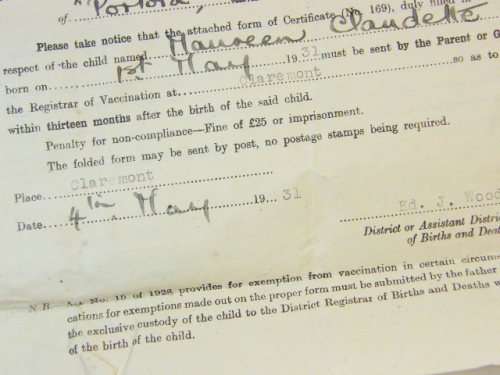 of Portora,
Please take notice that the attached form of Certificate (No. 169), duly filled
respect of the child named Maureen Claudette
born on 1st May 1931 must be sent by the Parent or G
the Registrar of Vaccination at Claremont so as to
within thirteen months after the birth of the said child.
Penalty for non-compliance—Fine of £25 or imprisonment.
The folded form may be sent by post, no postage stamps being required.
Place Claremont
Date 4th May 1931
J. Wood
District or Assistant Distri
of Births and Deat
N.B. No. 19 of 1928 provides for exemption from vaccination in certain circum
cations for exemptions made out on the proper form must be submitted by the father
the exclusive custody of the child to the District Registrar of Births and Deaths w
of the birth of the child.